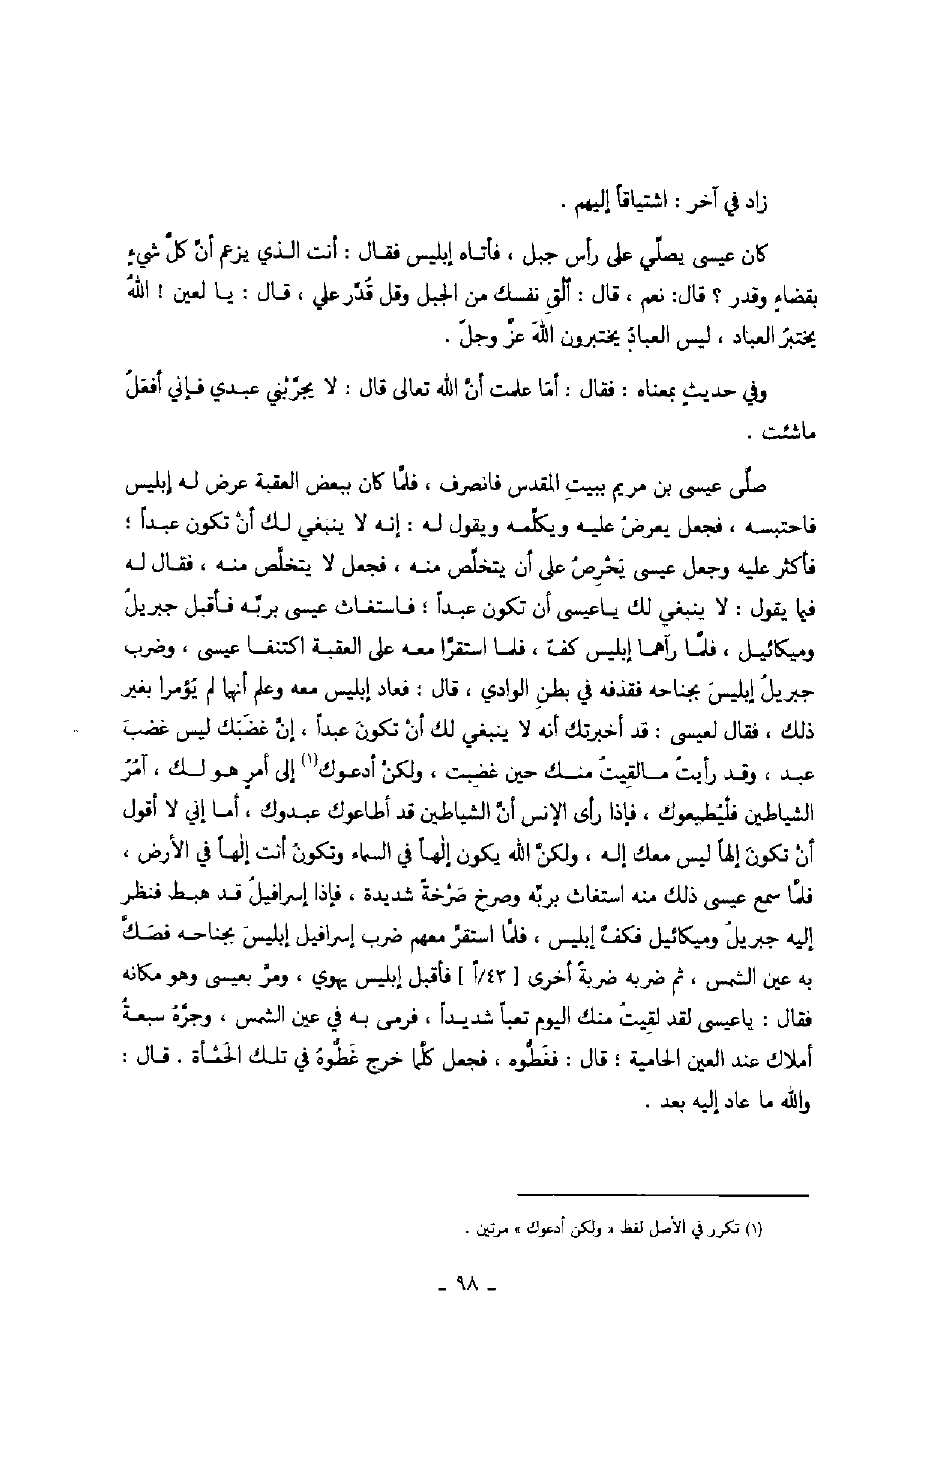 زاد في آخر : اشتياقاً إليهم .
كان عيسى يصلّي على رأس جبل ، فأتاه إبليس فقال : أنت الذي يزعم أنّ كلَّ شيءٍ
بقضاءٍ وقدر ؟ قال: نعم ، قال : ألقِ نفسك من الجبل وقل قُدّر علي ، قال : يا لعين ! اللهُ
يختبرُ العباد ، ليس العبادُ يختبرون اللهَ عزَّ وجلَّ .
وفي حديثٍ بمعناه : فقال : أمَا علمت أنَّ الله تعالى قال : لا يجرِّبُني عبدي فإني أفعَلُ
ماشئت .
صلَّى عيسى بن مريم ببيتِ المقدس فانصرف ، فلمَّا كان ببعض العقبة عرض له إبليس
فاحتبسه ، فجعل يعرضُ عليه ويكلِّمه ويقول له : إنه لا ينبغي لك أنْ تكون عبداً ؛
فأكثر عليه وجعل عيسى يَحْرِصُ على أن يتخلَّص منه ، فجعل لا يتخلَّص منه ، فقال له
فيما يقول : لا ينبغي لك ياعيسى أن تكون عبداً ؛ فاستغاث عيسى بربِّه فأقبل جبريلُ
وميكائيل ، فلمَّا رآهما إبليس كفّ ، فلما استقرَّا معه على العقبة اكتنفا عيسى ، وضرب
جبريلُ إبليسَ بجناحه فقذفه في بطنِ الوادي ، قال : فعاد إبليس معه وعلم أنهما لم يُؤمرا بغير
ذلك ، فقال لعيسى : قد أخبرتك أنه لا ينبغي لك أنْ تكونَ عبداً ، إنَّ غضَبَك ليس غضبَ
عبد ، وقد رأيتُ مالقيتُ منك حين غضبت ، ولكنْ أدعوك(١) إلى أمرٍ هو لك ، آمُرُ
الشياطين فلْيُطيعوك ، فإذا رأى الإنس أنَّ الشياطين قد أطاعوك عبدوك ، أما إني لا أقول
أنْ تكونَ إلهاً ليس معك إله ، ولكنَّ الله يكون إلٰهاً في السماء وتكونُ أنت إلٰهاً في الأرض ،
فلمَّا سمع عيسى ذلك منه استغاث بربِّه وصرخ صَرْخَةً شديدة ، فإذا إسرافيلُ قد هبط فنظر
إليه جبريلُ وميكائيل فكفَّ إبليس ، فلمَّا استقرَّ معهم ضرب إسرافيل إبليسَ بجناحه فصَكَّ
به عين الشمس ، ثم ضربه ضربةً أخرى [ ٤٣/أ ] فأقبل إبليس يهوي ، ومرَّ بعيسى وهو مكانه
فقال : ياعيسى لقد لقِيتُ منك اليوم تعباً شديداً ، فرمى به في عين الشمس ، وجرَّهُ سبعةُ
أملاك عند العين الحامية ؛ قال : فغَطُّوه ، فجعل كلَّما خرج غَطُّوهُ في تلك الحَمْأة . قال :
والله ما عاد إليه بعد .
(١) تكرر في الأصل لفظ « ولكن أدعوك » مرتين .
ـ ٩٨ ـ